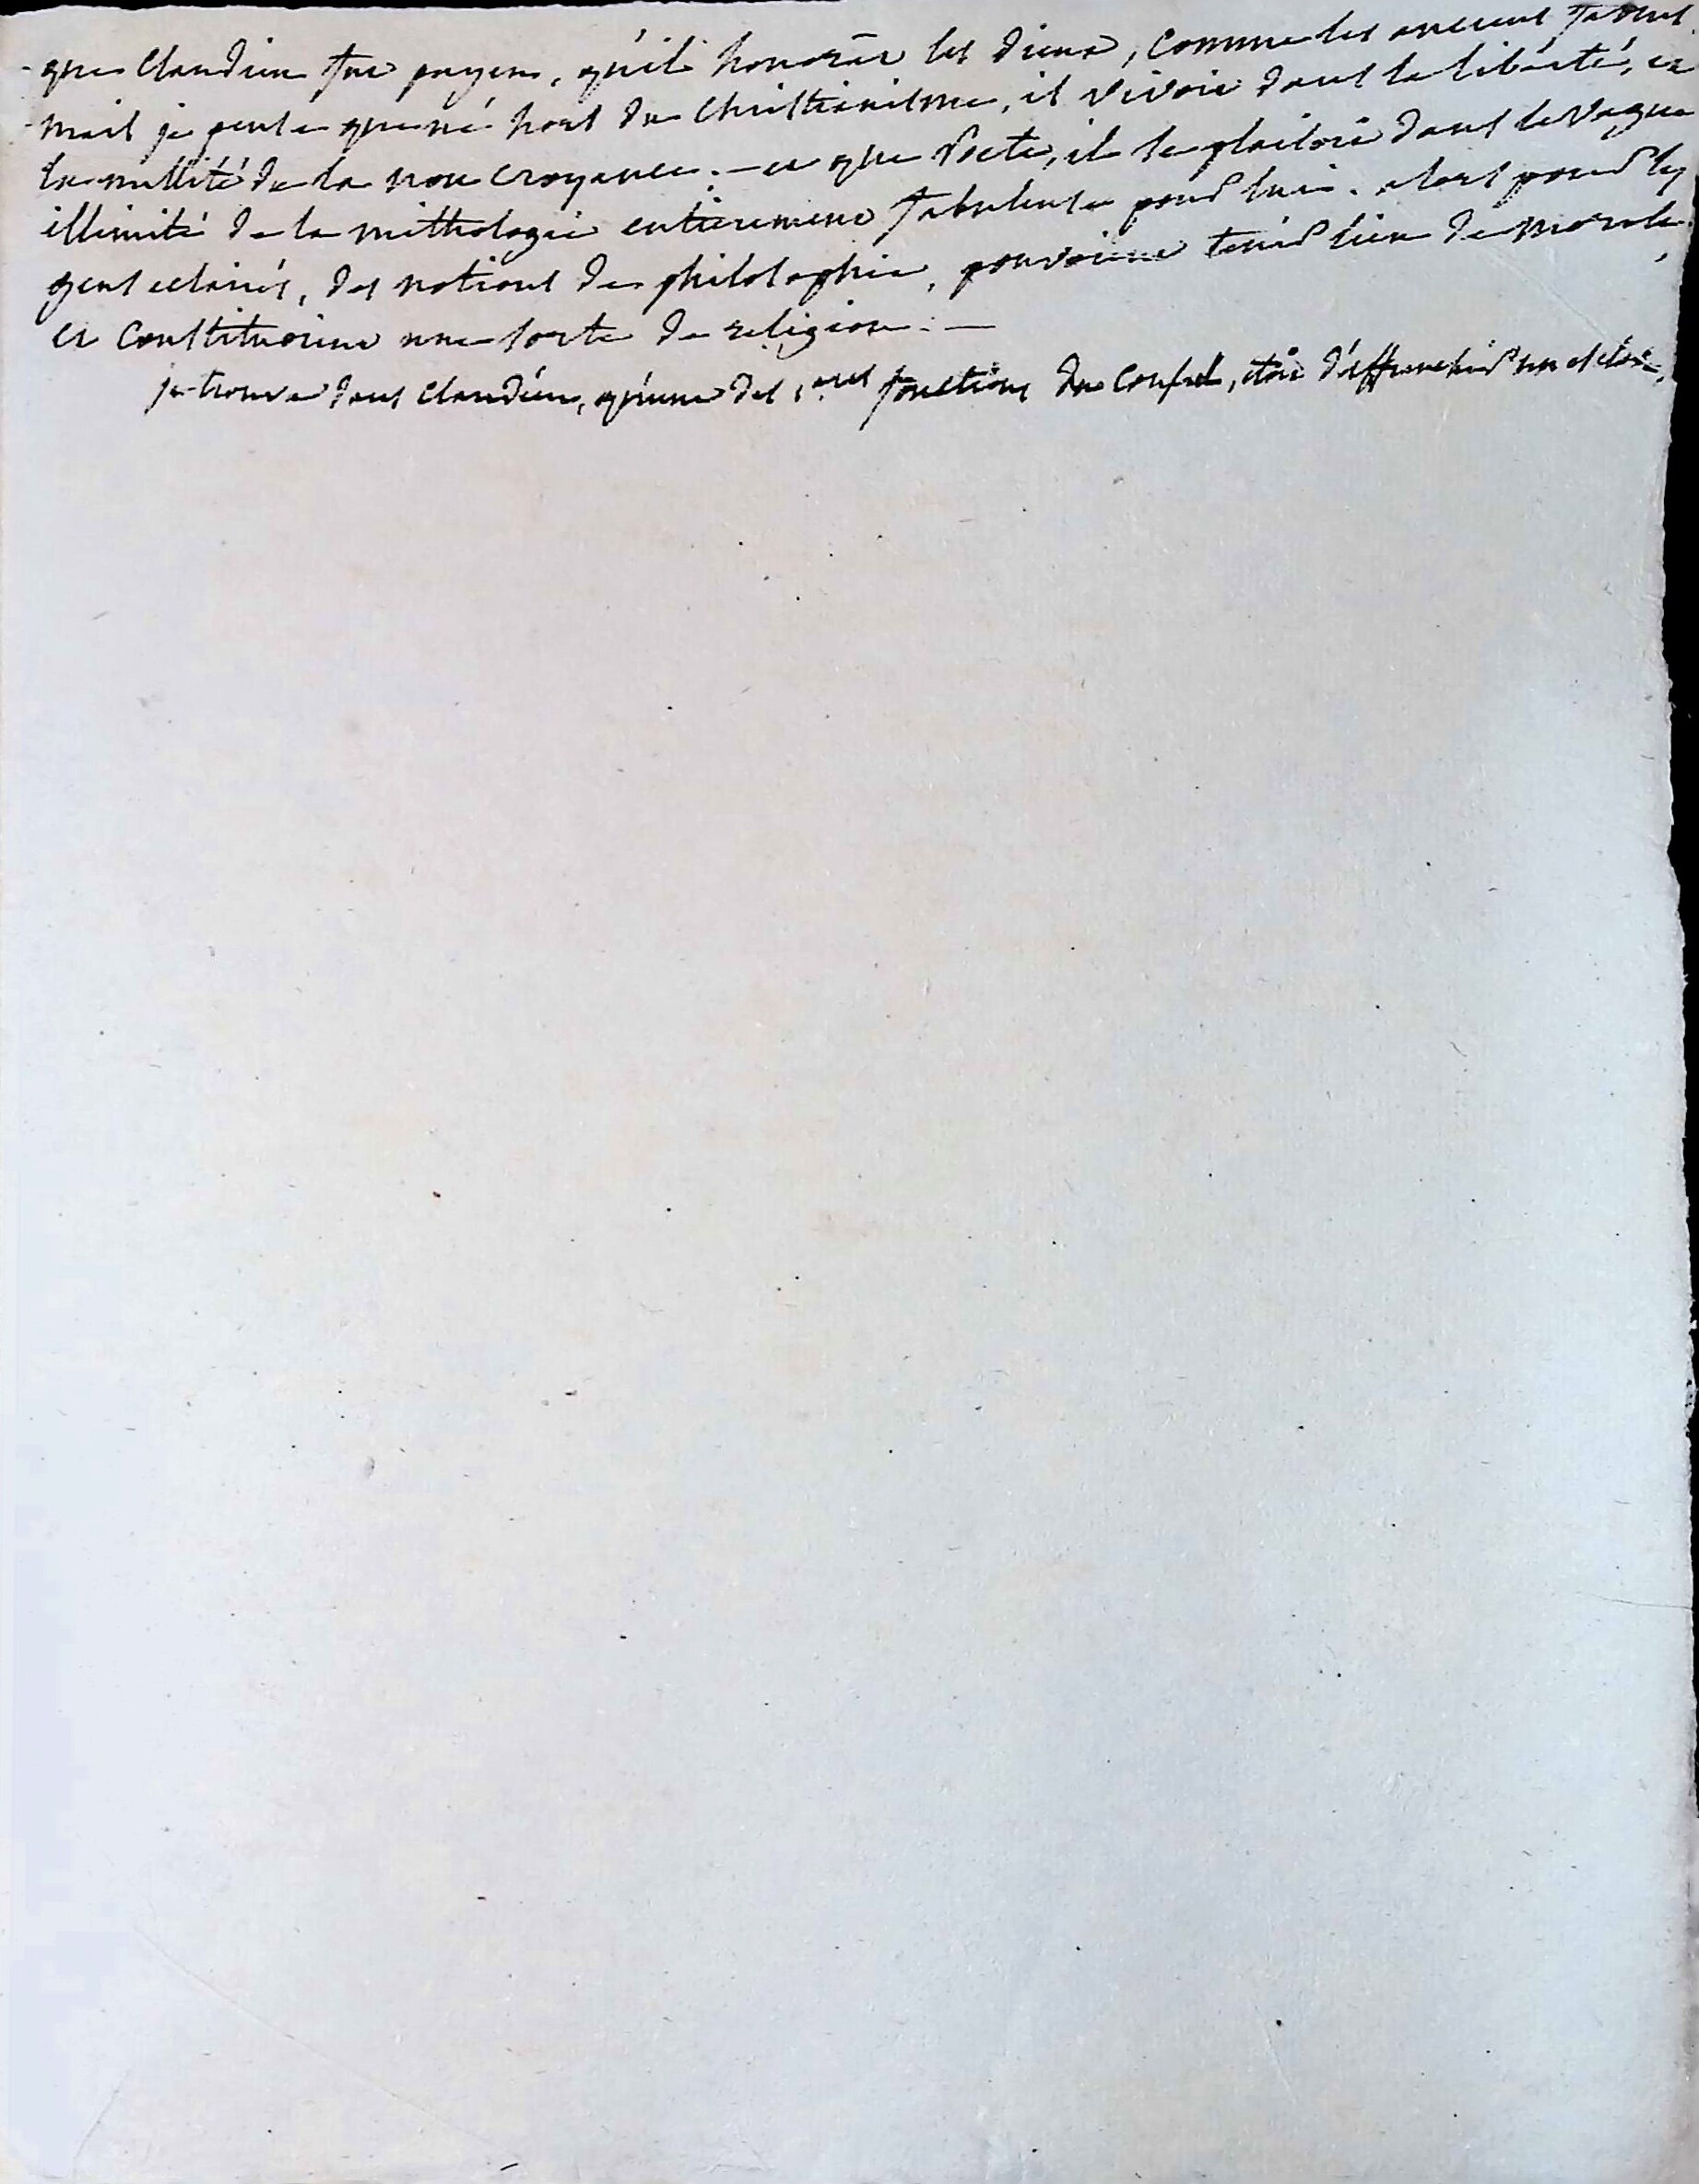 que Claudien fut payen, qu'il honorât les dieux, comme les anciens
mais je pense que né hors du Christianisme, il vivoit dans la liberté, et
la nullité de la non croyance. — et que Poete, il se plaisoit dans le vague
illimité de la mithologie entièrement fabuleuse pour lui. alors pour les
gens eclairés, des notions de philosophie, pouvoient tenir lieu de morale,
et constituoient une sorte de religion. —
je trouve dans Claudien, qu'une des 1.eres fonctions du Consul, étoit d'affranchir un esclave.